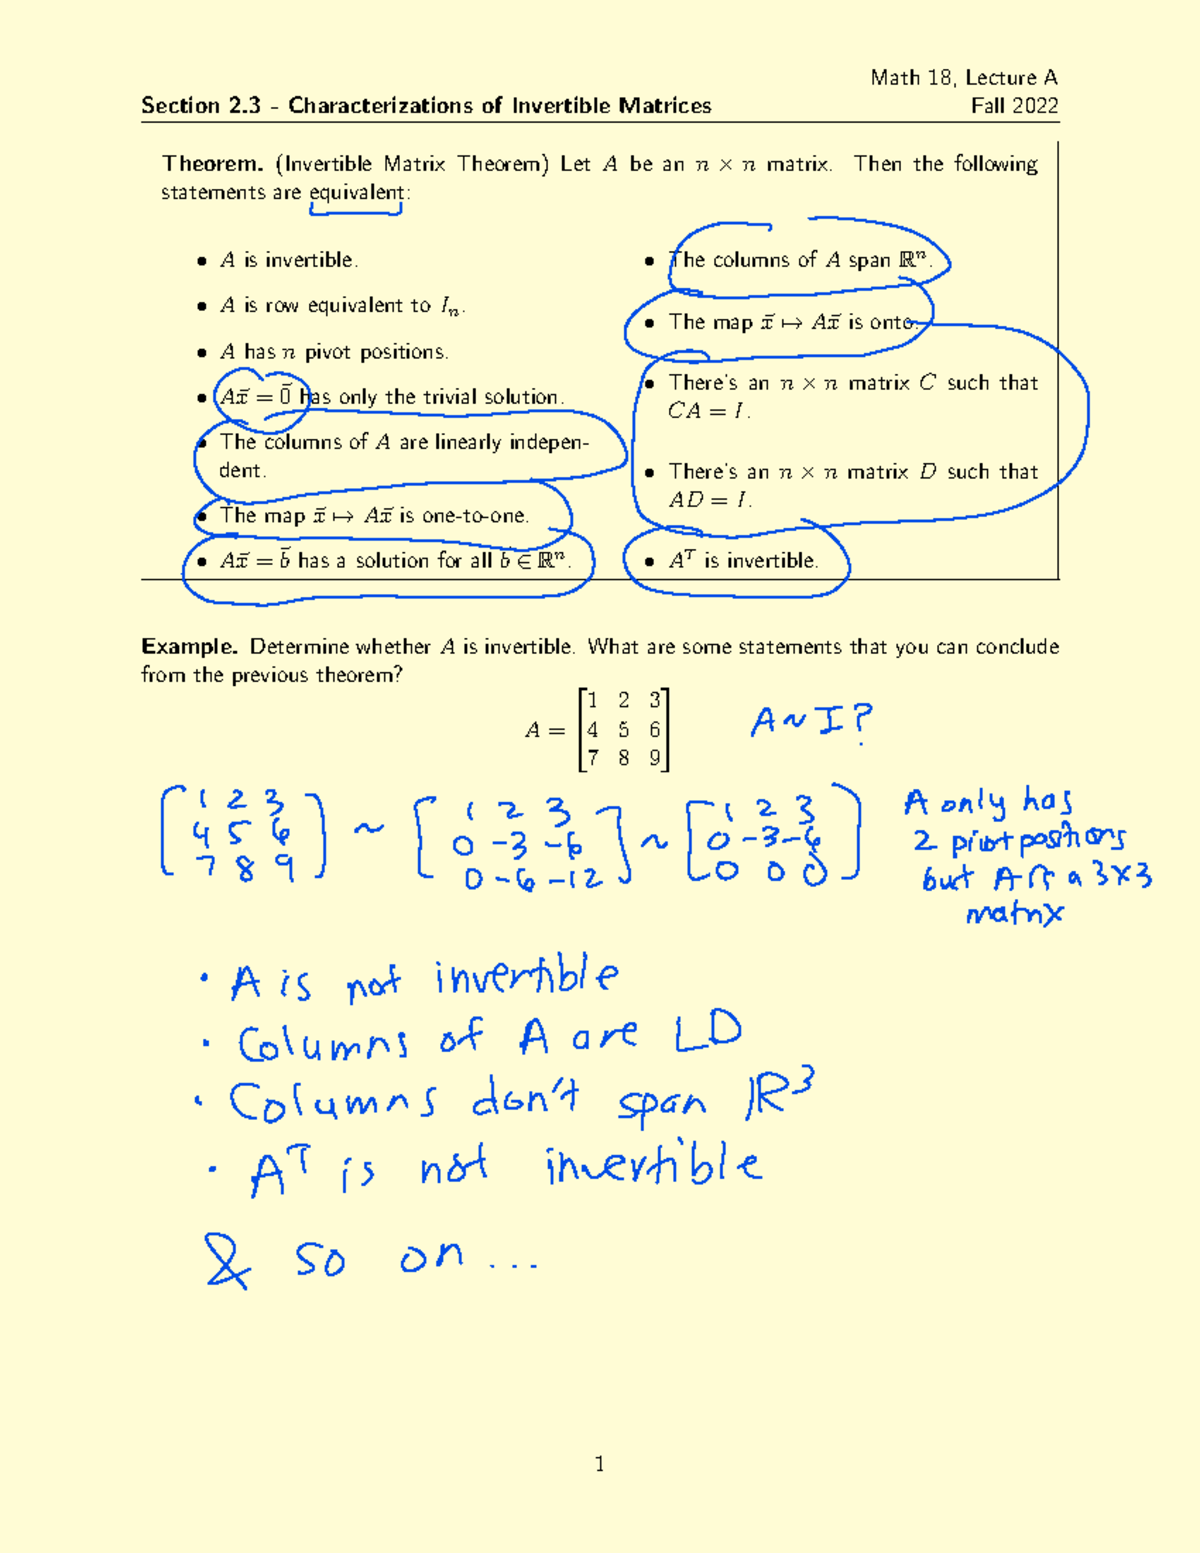 Math 18, Lecture A
Section 2.3 - Characterizations of Invertible Matrices Fall 2022
Theorem. (Invertible Matrix Theorem) Let A be an n × n matrix. Then the following
statements are equivalent:
• A is invertible.
• A is row equivalent to Iₙ.
• A has n pivot positions.
• Ax⃗ = 0⃗ has only the trivial solution.
• The columns of A are linearly indepen-
dent.
• The map x⃗ ↦ Ax⃗ is one-to-one.
• Ax⃗ = b⃗ has a solution for all b ∈ ℝⁿ.
• The columns of A span ℝⁿ.
• The map x⃗ ↦ Ax⃗ is onto.
• There's an n × n matrix C such that
CA = I.
• There's an n × n matrix D such that
AD = I.
• Aᵀ is invertible.
Example. Determine whether A is invertible. What are some statements that you can conclude
from the previous theorem?
1 2 3
A = 4 5 6
7 8 9
A ~ I?
1 2 3 1 2 3 1 2 3
4 5 6 ~ 0 -3 -6 ~ 0 -3 -6
7 8 9 0 -6 -12 0 0 0
A only has
2 pivot positions
but A is a 3x3
matrix
• A is not invertible
• Columns of A are LD
• Columns don't span ℝ³
• Aᵀ is not invertible
& so on ...
1